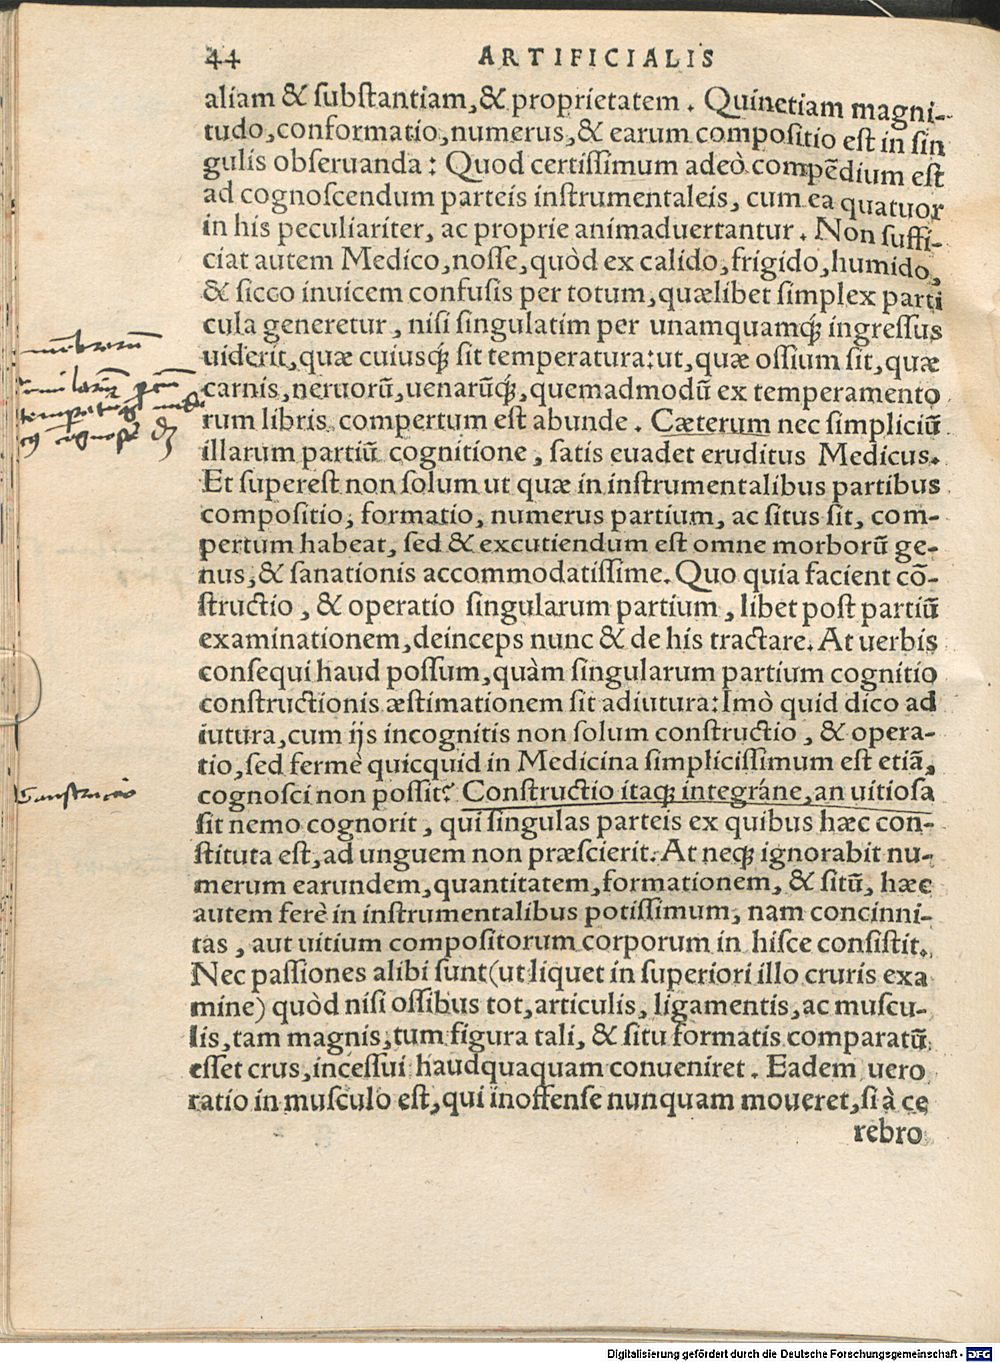 44 ARTIFICIALIS
aliam & ſubſtantiam, & proprietatem. Quinetiam magni-
tudo, conformatio, numerus, & earum compoſitio eſt in ſin
gulis obſeruanda: Quod certiſſimum adeò compẽdium eſt
ad cognoſcendum parteis inſtrumentaleis, cum ea quatuor
in his peculiariter, ac proprie animaduertantur. Non ſuffi-
ciat autem Medico, noſſe, quòd ex calido, frigido, humido,
& ſicco inuicem confuſis per totum, quælibet ſimplex parti
cula generetur, niſi ſingulatim per unamquamq́; ingreſſus
uiderit, quæ cuiusq́; ſit temperatura: ut, quæ oſſium ſit, quæ
carnis, neruorũ, uenarũq́;, quemadmodũ ex temperamento
rum libris compertum eſt abunde. Cæterum nec ſimpliciũ
illarum partiũ cognitione, ſatis euadet eruditus Medicus.
Et ſupereſt non ſolum ut quæ in inſtrumentalibus partibus
compoſitio, formatio, numerus partium, ac ſitus ſit, com-
pertum habeat, ſed & excutiendum eſt omne morborũ ge-
nus, & ſanationis accommodatiſſime. Quo quia facient cõ-
ſtructio, & operatio ſingularum partium, libet poſt partiũ
examinationem, deinceps nunc & de his tractare. At uerbis
conſequi haud poſſum, quàm ſingularum partium cognitio
conſtructionis æſtimationem ſit adiutura: Imò quid dico ad
iutura, cum ijs incognitis non ſolum conſtructio, & opera-
tio, ſed fermè quicquid in Medicina ſimpliciſſimum eſt etiã,
cognoſci non poſſit? Conſtructio itaq; integráne, an uitioſa
ſit nemo cognorit, qui ſingulas parteis ex quibus hæc con-
ſtituta eſt, ad unguem non præſcierit. At neq; ignorabit nu-
merum earundem, quantitatem, formationem, & ſitũ, hæc
autem ferè in inſtrumentalibus potiſſimum, nam concinni-
tas, aut uitium compoſitorum corporum in hiſce conſiſtit.
Nec paſſiones alibi ſunt (ut liquet in ſuperiori illo cruris exa
mine) quòd niſi oſſibus tot, articulis, ligamentis, ac muſcu-
lis, tam magnis, tum figura tali, & ſitu formatis comparatũ
eſſet crus, inceſſui haudquaquam conueniret. Eadem uero
ratio in muſculo eſt, qui inoffenſe nunquam moueret, ſi à ce
rebro
Digitalisierung gefördert durch die Deutsche Forschungsgemeinschaft - DFG